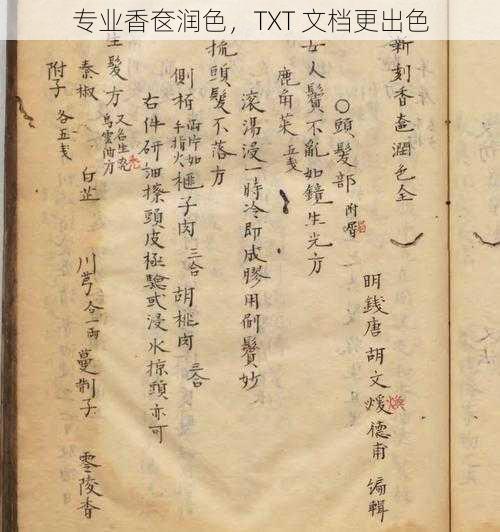 专业香奁润色，TXT 文档更出色
新刻香奩潤色全
明錢唐胡文煖德甫 編輯
煥
○頭髮部 附眉
眉
女人鬢不亂如鏡生光方
鹿角菜 五戔
滚湯浸一時冷即成膠用刷鬢妙
梳頭髮不落方
側栢 兩片如手指大 榧子肉 三合 胡桃肉 二合
右件研油擦頭皮極驗或浸水掠頭亦可
生髮方 又名生禿烏雲油方
禿
秦椒 白芷 川芎 各一両 蔓荆子 零陵香
附子 各五戔